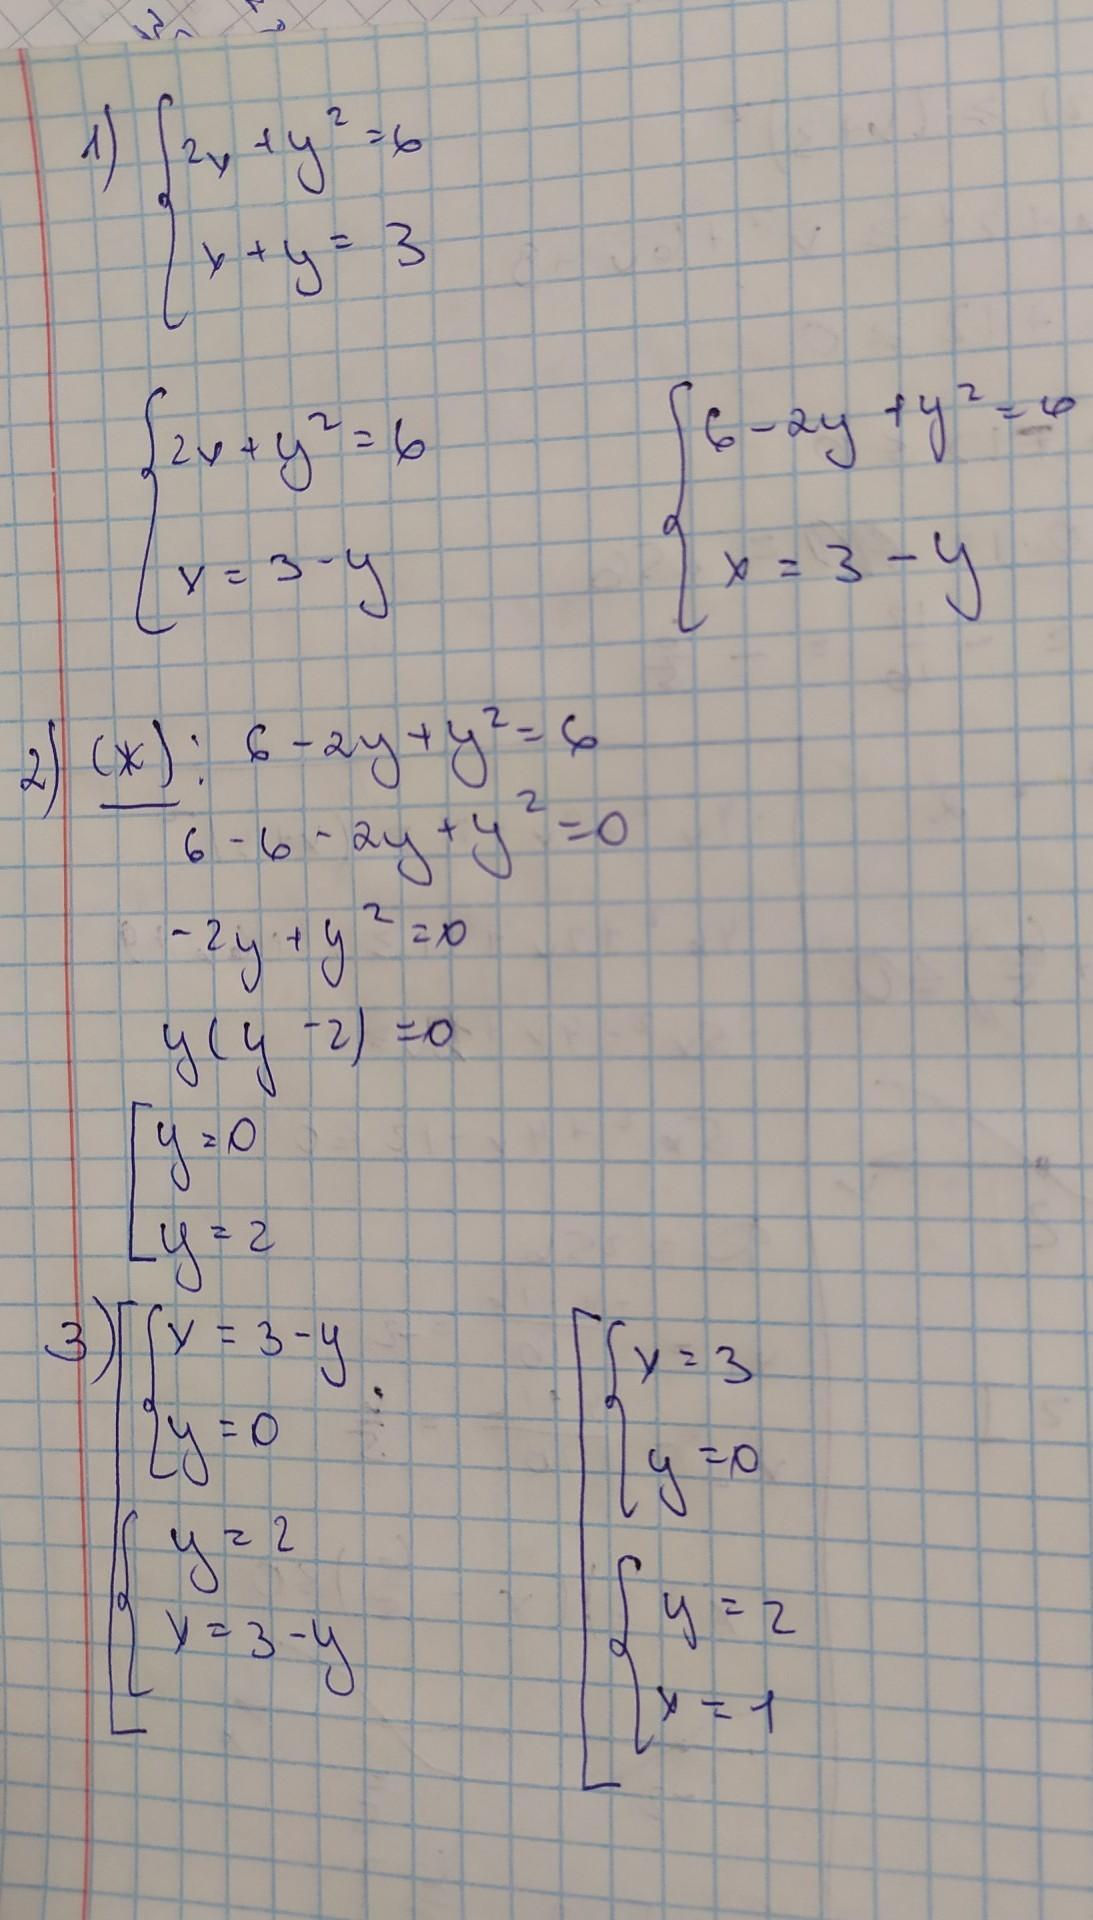 1) { 2x + y² = 6
x + y = 3
{ 2x + y² = 6
x = 3 - y
{ 6 - 2y + y² = 6
x = 3 - y
2) (*): 6 - 2y + y² = 6
6 - 6 - 2y + y² = 0
-2y + y² = 0
y(y - 2) = 0
[ y = 0
y = 2
3) [ { x = 3 - y
y = 0
{ y = 2
x = 3 - y
[ { x = 3
y = 0
{ y = 2
x = 1